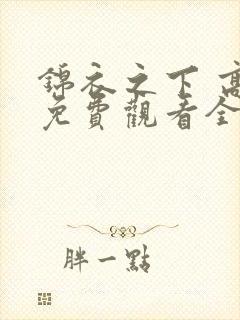 錦衣之下 高
免費觀看全
胖一點